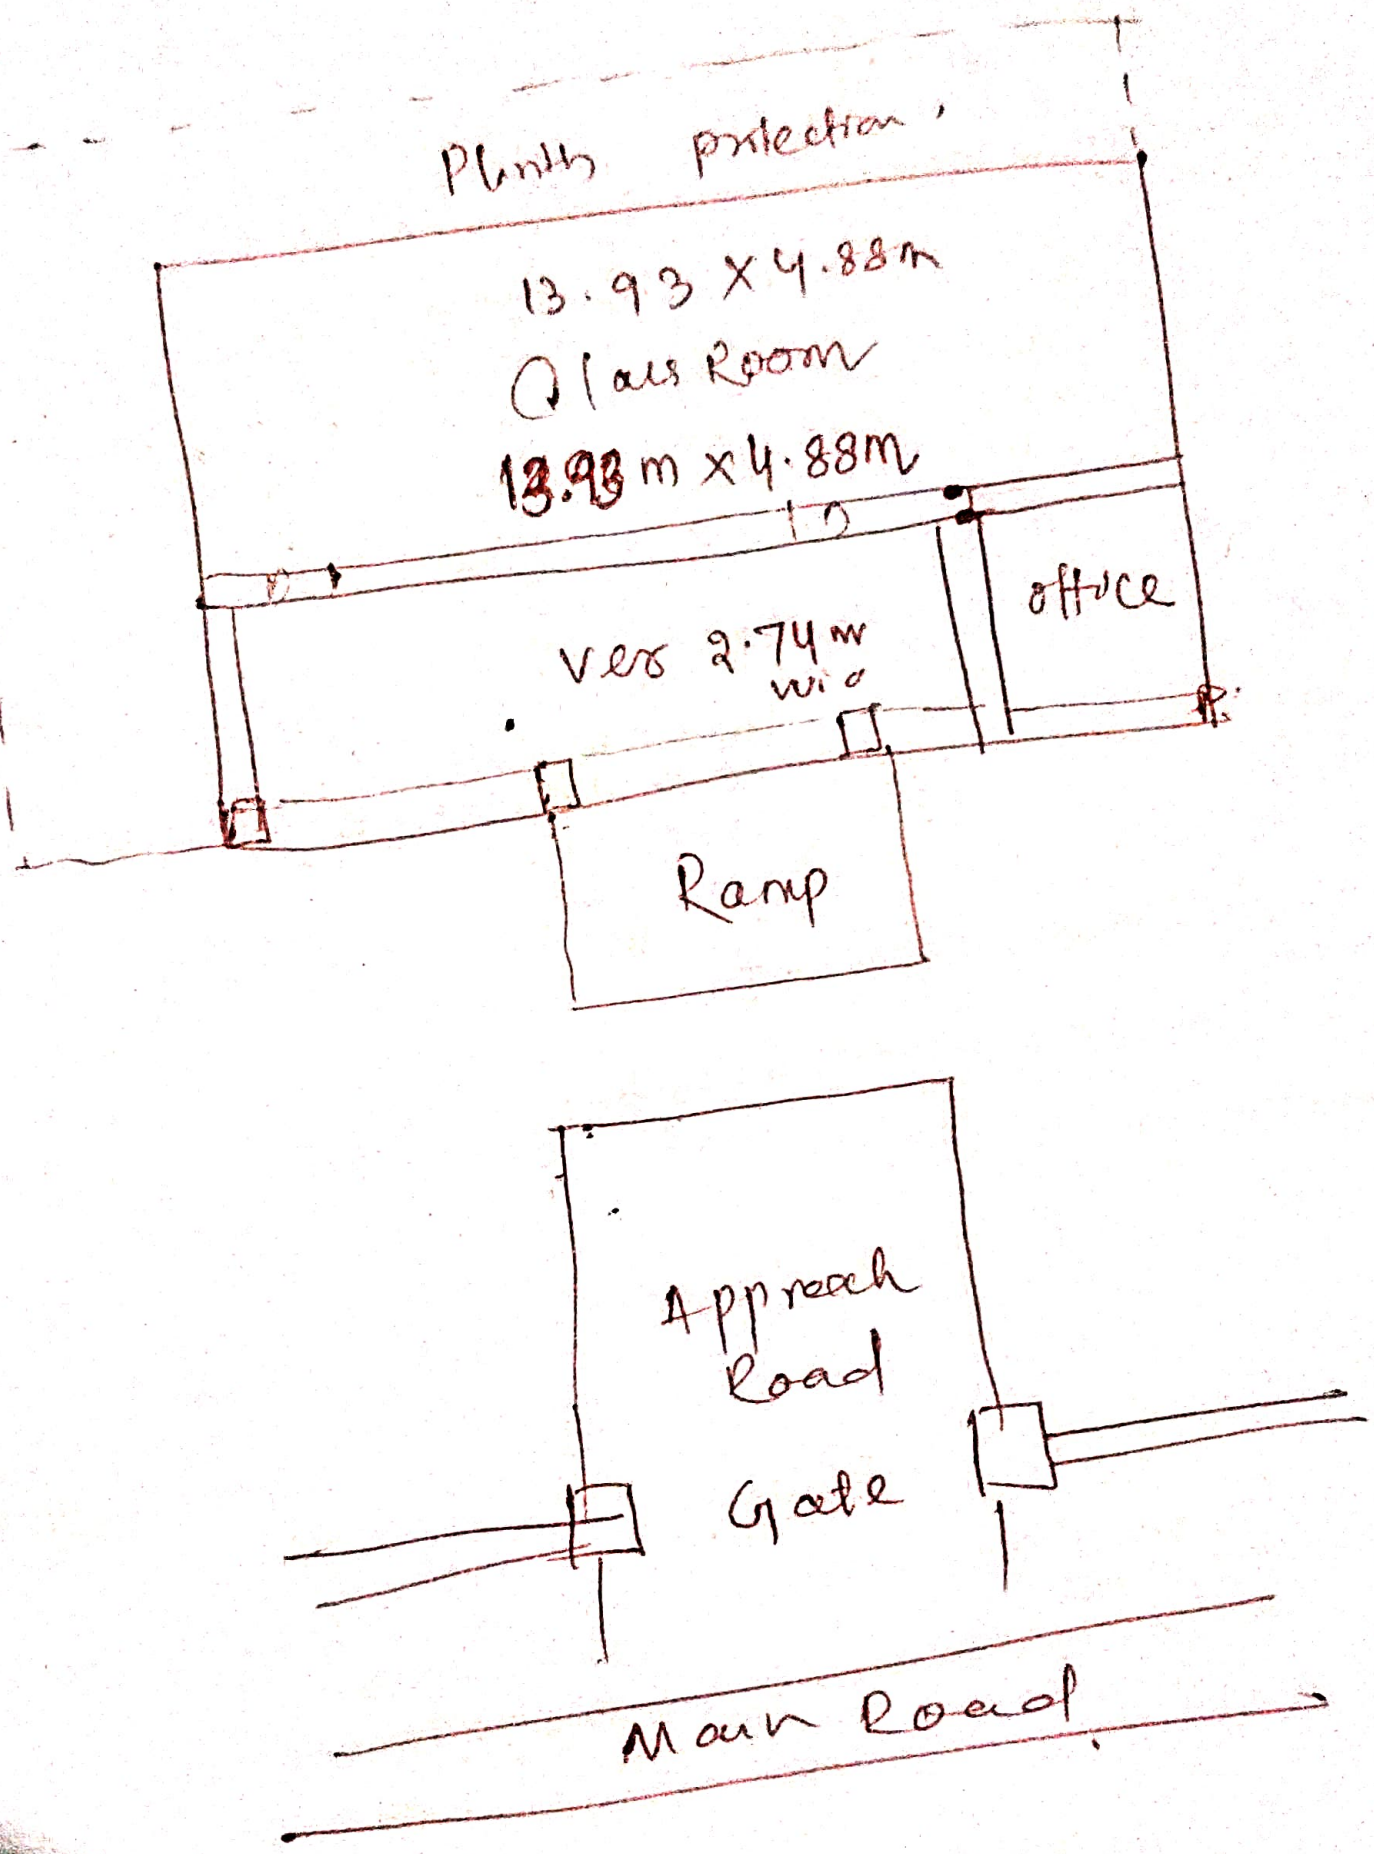 Plinth protection.
13.93 X 4.88m
Class Room
13.93 m x 4.88m
office
Ver 2.74 m
Ramp
Approach
Road
Gate
Main Road